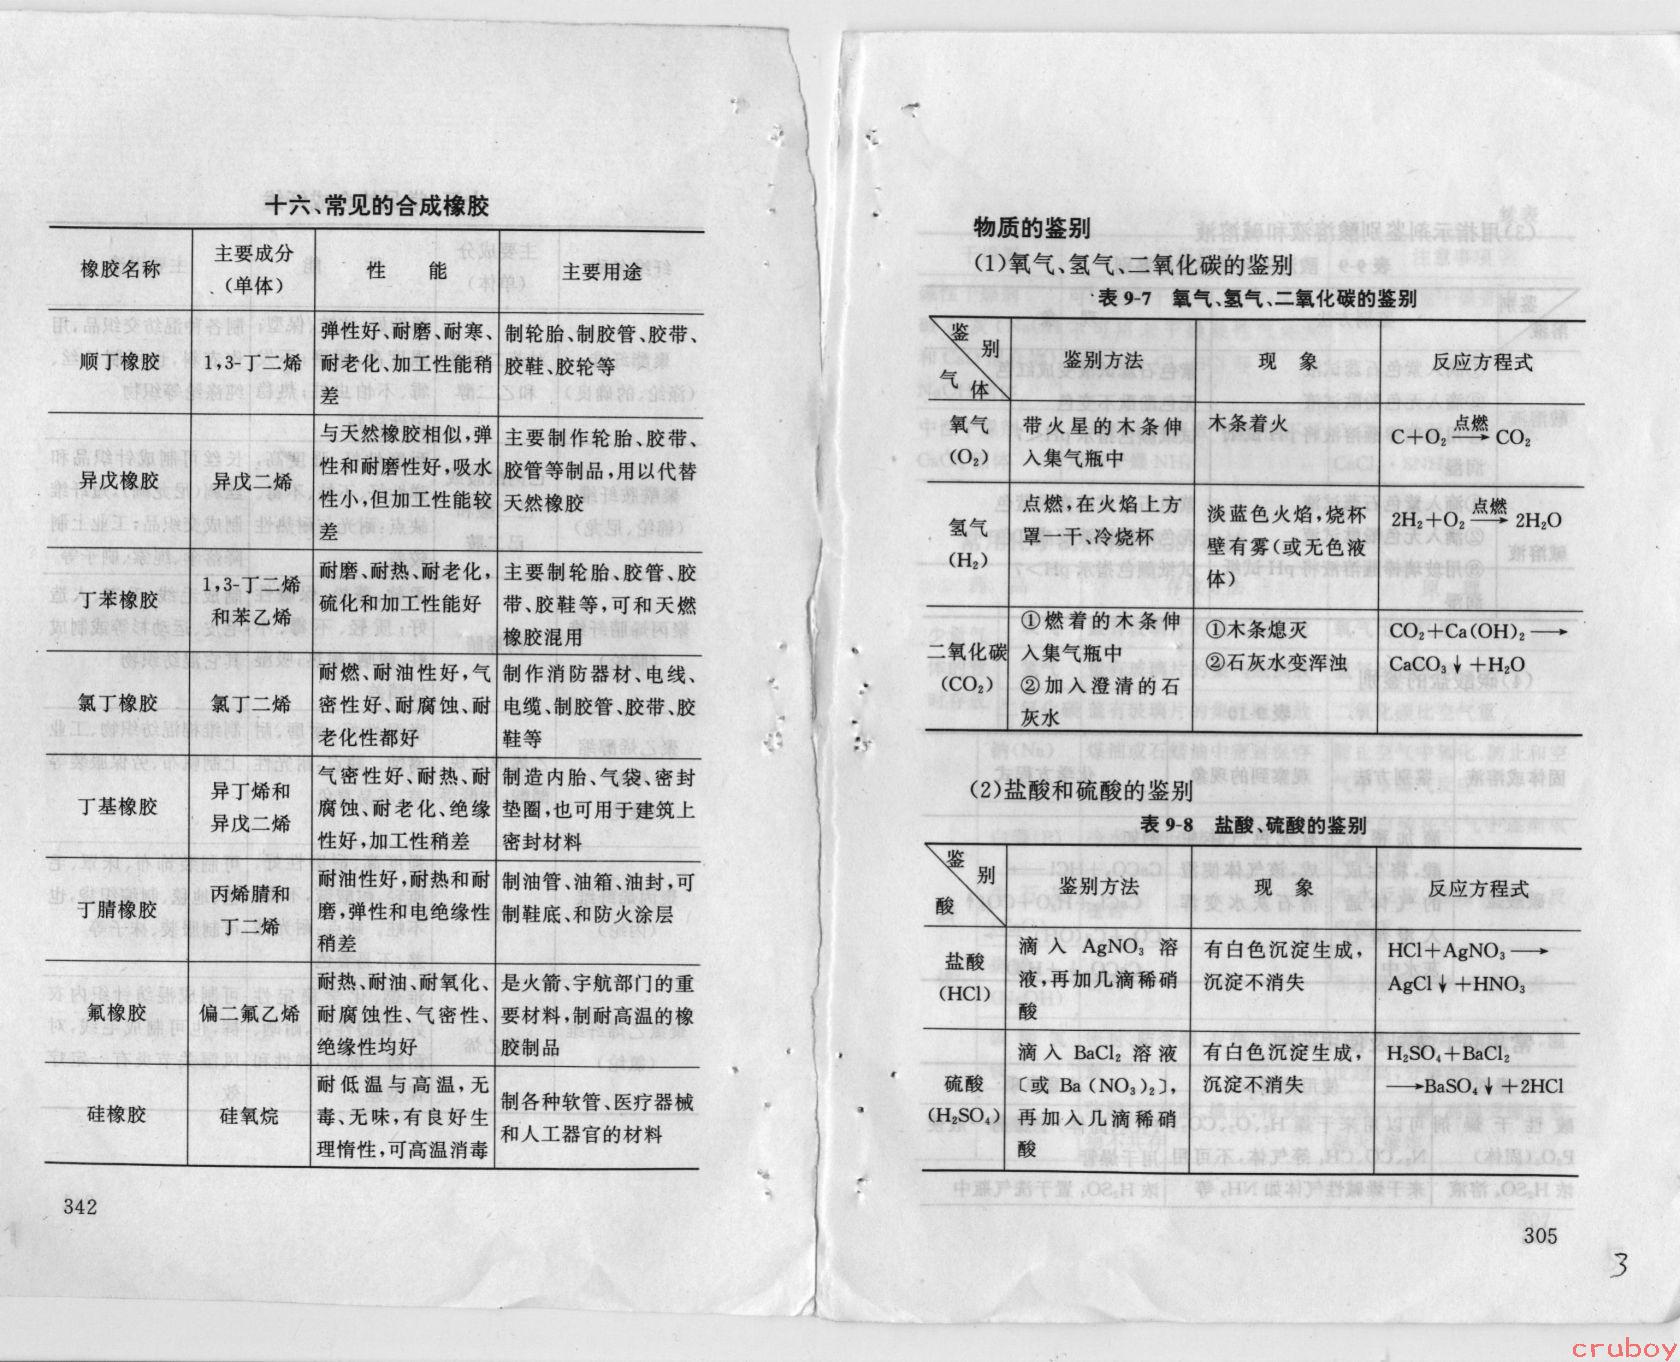 十六、常见的合成橡胶
橡胶名称
主要成分
(单体)
性 能
主要用途
顺丁橡胶
1,3-丁二烯
弹性好、耐磨、耐寒、
耐老化、加工性能稍
差
制轮胎、制胶管、胶带、
胶鞋、胶轮等
异戊橡胶
异戊二烯
与天然橡胶相似,弹
性和耐磨性好,吸水
性小,但加工性能较
差
主要制作轮胎、胶带、
胶管等制品,用以代替
天然橡胶
丁苯橡胶
1,3-丁二烯
和苯乙烯
耐磨、耐热、耐老化,
硫化和加工性能好
主要制轮胎、胶管、胶
带、胶鞋等,可和天燃
橡胶混用
氯丁橡胶
氯丁二烯
耐燃、耐油性好,气
密性好、耐腐蚀、耐
老化性都好
制作消防器材、电线、
电缆、制胶管、胶带、胶
鞋等
丁基橡胶
异丁烯和
异戊二烯
气密性好、耐热、耐
腐蚀、耐老化、绝缘
性好,加工性稍差
制造内胎、气袋、密封
垫圈,也可用于建筑上
密封材料
丁腈橡胶
丙烯腈和
丁二烯
耐油性好,耐热和耐
磨,弹性和电绝缘性
稍差
制油管、油箱、油封,可
制鞋底、和防火涂层
氟橡胶
偏二氟乙烯
耐热、耐油、耐氧化、
耐腐蚀性、气密性、
绝缘性均好
是火箭、宇航部门的重
要材料,制耐高温的橡
胶制品
硅橡胶
硅氧烷
耐低温与高温,无
毒、无味,有良好生
理惰性,可高温消毒
制各种软管、医疗器械
和人工器官的材料
342
物质的鉴别
(1)氧气、氢气、二氧化碳的鉴别
表 9-7 氧气、氢气、二氧化碳的鉴别
鉴别
气体
鉴别方法
现 象
反应方程式
氧气
(O₂)
带火星的木条伸
入集气瓶中
木条着火
C+O₂ 点燃→ CO₂
氢气
(H₂)
点燃,在火焰上方
罩一干、冷烧杯
淡蓝色火焰,烧杯
壁有雾(或无色液
体)
2H₂+O₂ 点燃→ 2H₂O
二氧化碳
(CO₂)
①燃着的木条伸
入集气瓶中
②加入澄清的石
灰水
①木条熄灭
②石灰水变浑浊
CO₂+Ca(OH)₂→
CaCO₃↓+H₂O
(2)盐酸和硫酸的鉴别
表 9-8 盐酸、硫酸的鉴别
鉴别
酸
鉴别方法
现 象
反应方程式
盐酸
(HCl)
滴入 AgNO₃ 溶
液,再加几滴稀硝
酸
有白色沉淀生成,
沉淀不消失
HCl+AgNO₃→
AgCl↓+HNO₃
硫酸
(H₂SO₄)
滴入 BaCl₂ 溶液
〔或 Ba(NO₃)₂〕,
再加入几滴稀硝
酸
有白色沉淀生成,
沉淀不消失
H₂SO₄+BaCl₂
→BaSO₄↓+2HCl
305
3
cruboy